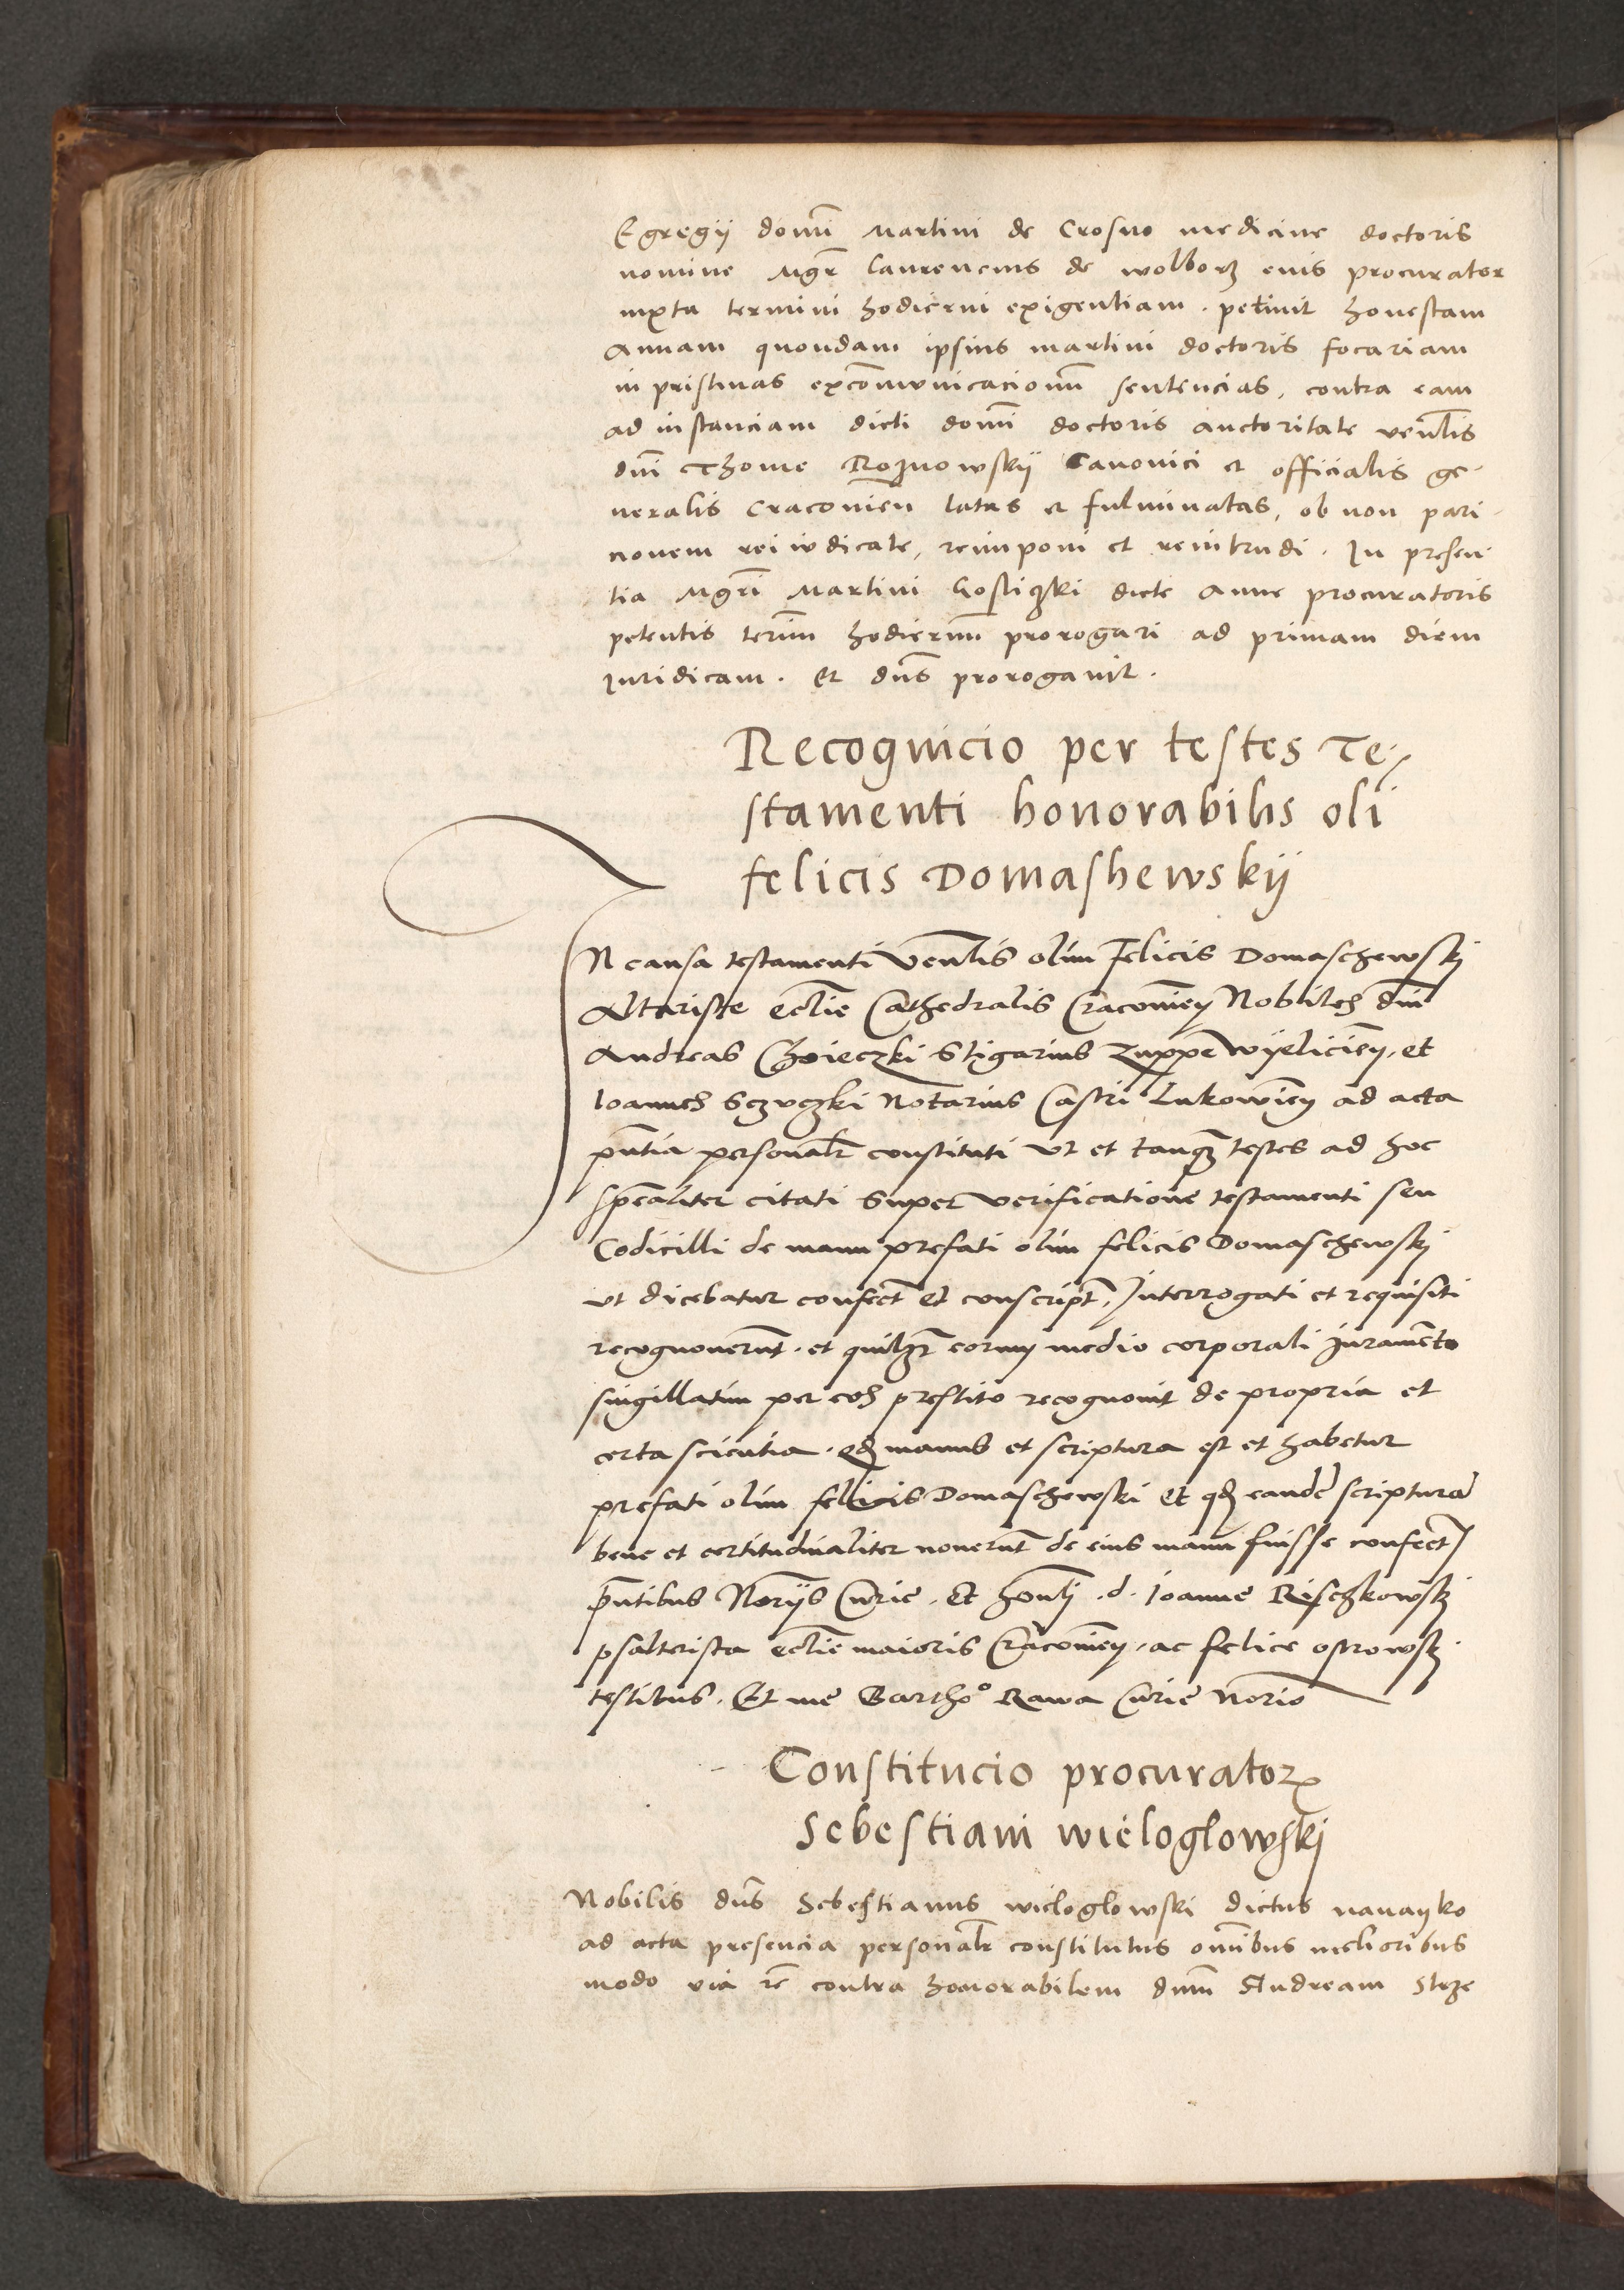 Egregij domī Martini de Crosno medicine doctoris
nomine Mgr̄ Laurencius de wolborz eius procurator
iuxta termini hodierni exigentiam. petiuit honestam
Annam quondam ipsius martini doctoris focariam
in pristinas excōmunicacionū sentencias, contra eam
ad instanciam dicti domī doctoris auctoritate venēlis
dnī Thome Roznowskij Canonici et officialis ge-
neralis Cracovien latas et fulminatas, ob non pari-
cionem rei iudicate, reimponi et reintrudi. In presen-
tia Mgrī Martini Gosliczki dicte Anne procuratoris
petentis termī hodiernū prorogari ad primam diem
Iuridicam. et dn̄s prorogauit.
Recognicio per testes Te-
stamenti honorabilis oli
felicis Domashewskij
IN causa testamenti Venēlis olim Felicis Domaschewskj
Altariste eccl̄ie Cathedralis Cracovien̄ Nobiles dn̄i
Andreas Stigarius Zuppe wijelicien̄. et
Ioannes Notarius Castri Lukowien̄ ad acta
pn̄tia personalr̄ constituti vt et tanq̄ testes ad hoc
spēaliter citati super verificatione testamenti seu
Codicilli de manu prefati olim felicis Domaschewskj
vt dicebatur confect̄ et conscript̄. Interrogati et requisiti
recognouerunt̄. et quilibet eorum medio corporali Iuramēto
singillatim per eos prestito recognouit de propria et
certa scientia. qd manus et scriptura est et habetur
prefati olim felicis Domaschewski et qd eandē scripturā
bene et certitudinaliter nouerunt̄ de eius manu fuisse confect̄
p̄ntibus Norijs Curie. Et hon̄li .d. Ioanne Rischkowskj
psalterista eccl̄ie maioris Cracovien̄. ac felice ostrowskj
testibus. Et me Bartho° Rawa Curie Norio
Constitucio procurator
Sebestiani wieloglowskj
Nobilis dn̄s Sebestianus wieloglowski dictus nanayko
ad acta presencia personalr̄ constitutus om̄ibus melioribus
modo via rē contra honorabilem dnm̄ Andream Strze